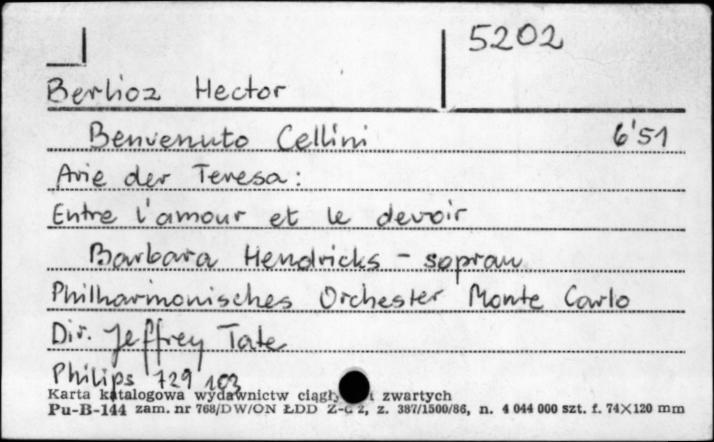 5202
Berlioz Hector
Benvenuto Cellini 6'51
Arie der Teresa:
Entre l'amour et le devoir
Barbara Hendricks - sopran
Philharmonisches Orchester Monte Carlo
Dir. Jeffrey Tate
Philips 729 103
Karta katalogowa wydawnictw ciągłych zwartych
Pu-B-144 zam. nr 768/DW/ON ŁDD z. 387/1500/86, n. 4 044 000 szt. f. 74×120 mm